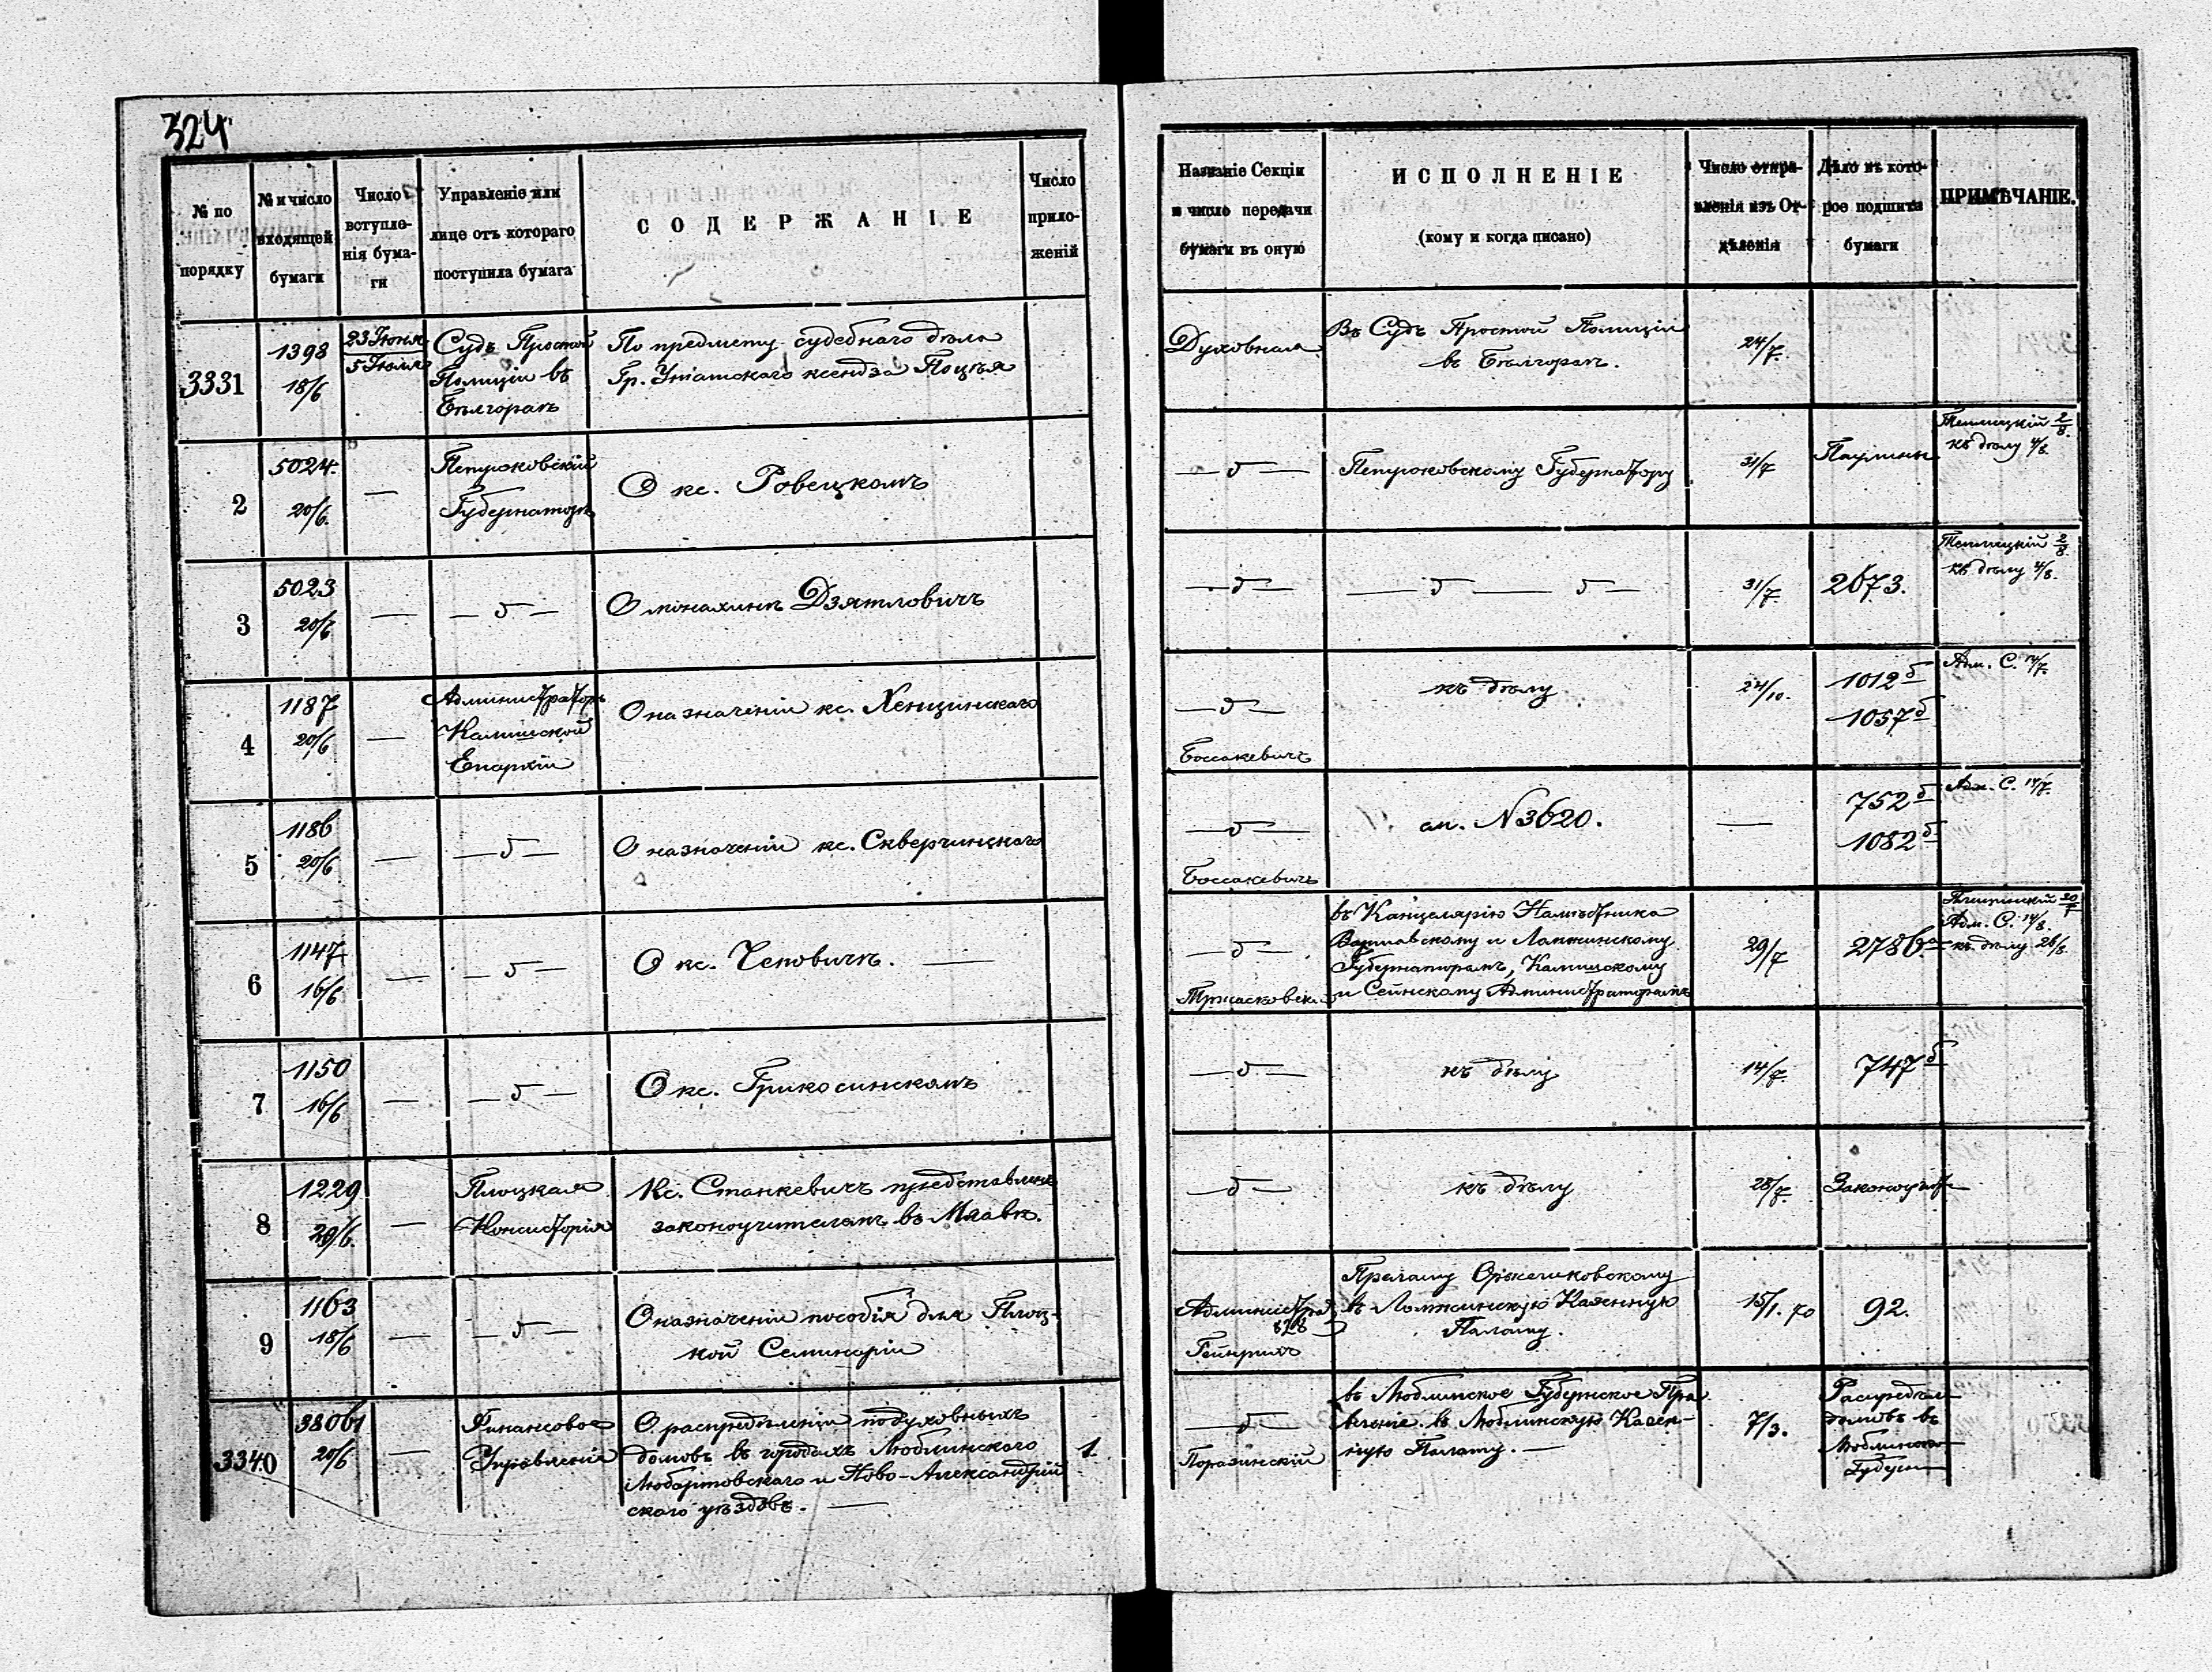 324
№ по порядку
№ и число входящей бумаги
Число вступле-нія бума-ги
Управленіе или лице отъ котораго поступила бумага
СОДЕРЖАНІЕ
Число прило-женій
Названіе Секціи и число передачи бумаги въ оную
ИСПОЛНЕНІЕ
(кому и когда писано)
Число отпра-вленія изъ От-дѣленія
Дѣло въ кото-рое подшита бумаги
ПРИМѢЧАНІЕ.
3331
1398
18/6
23 Іюня
5 Іюля
Судъ Простой
Полиціи въ
Бѣлгораѣ
По предмету судебнаго дѣла
Гр. Уніатскаго ксендза Поцѣя
Духовная
Въ Судъ Простой Полиціи
въ Бѣлгораѣ.
24/7.
2
5024.
20/6.
—
Петроковскій
Губернаторъ
О кс. Ровецкомъ
— δ —
Петроковскому Губернатору
31/7
Паулины
2/8.
къ дѣлу 4/8.
3
5023
20/6
—
— δ —
О монахинѣ Дзятловичъ
— δ —
— δ — δ —
31/7.
2673.
2/8.
къ дѣлу 4/8.
4
1187
20/6
—
Администраторъ
Калишской
Епархіи
О назначеніи кс. Хенцинскаго
— δ —
Боссакевичъ
къ дѣлу
24/10.
1012 б
1057 б
Адм. С. 14/7.
5
1186
20/6.
—
— δ —
О назначеніи кс. Скверчинскаго
— δ —
Боссакевичъ
см. N 3620.
—
752 б
1082 б
Адм. С. 14/7.
6
1147
16/6
—
— δ —
О кс. Чеповичѣ. —
— δ —
въ Канцелярію Намѣстника
Варшавскому и Ломжинскому
Губернаторамъ, Калишскому
и Сейнскому Администраторамъ
29/7
2786. а
20/7
Адм. С. 14/8.
къ дѣлу 26/8.
7
1150
16/6
—
— δ —
О кс. Грикосинскомъ
— δ —
къ дѣлу
14/7.
747 б
8
1229
20/6.
—
Плоцкая
Консисторія
Кс. Станкевичъ представленъ
законоучителемъ въ Млавѣ.
— δ —
къ дѣлу
28/7.
9
1163
18/6
—
— δ —
О назначеніи пособія для Плоц-
кой Семинаріи
Администрат.
Гейнрихъ
Прелату Оржешковскому
въ Ломжинскую Казенную
Палату.
15/1. 70
92.
3340
38061
20/6
—
Финансовое
Управленіе
О распредѣленіи подуховныхъ
домовъ въ городахъ Люблинскаго
Любартовскаго и Ново-Александрій
скаго уѣздовъ. —
1
— δ —
Поразинскій
въ Люблинское Губернское Пра
вленіе. въ Люблинскую Казен-
ную Палату. —
7/3.
Распредѣл
домовъ въ
Люблинской
Губерн